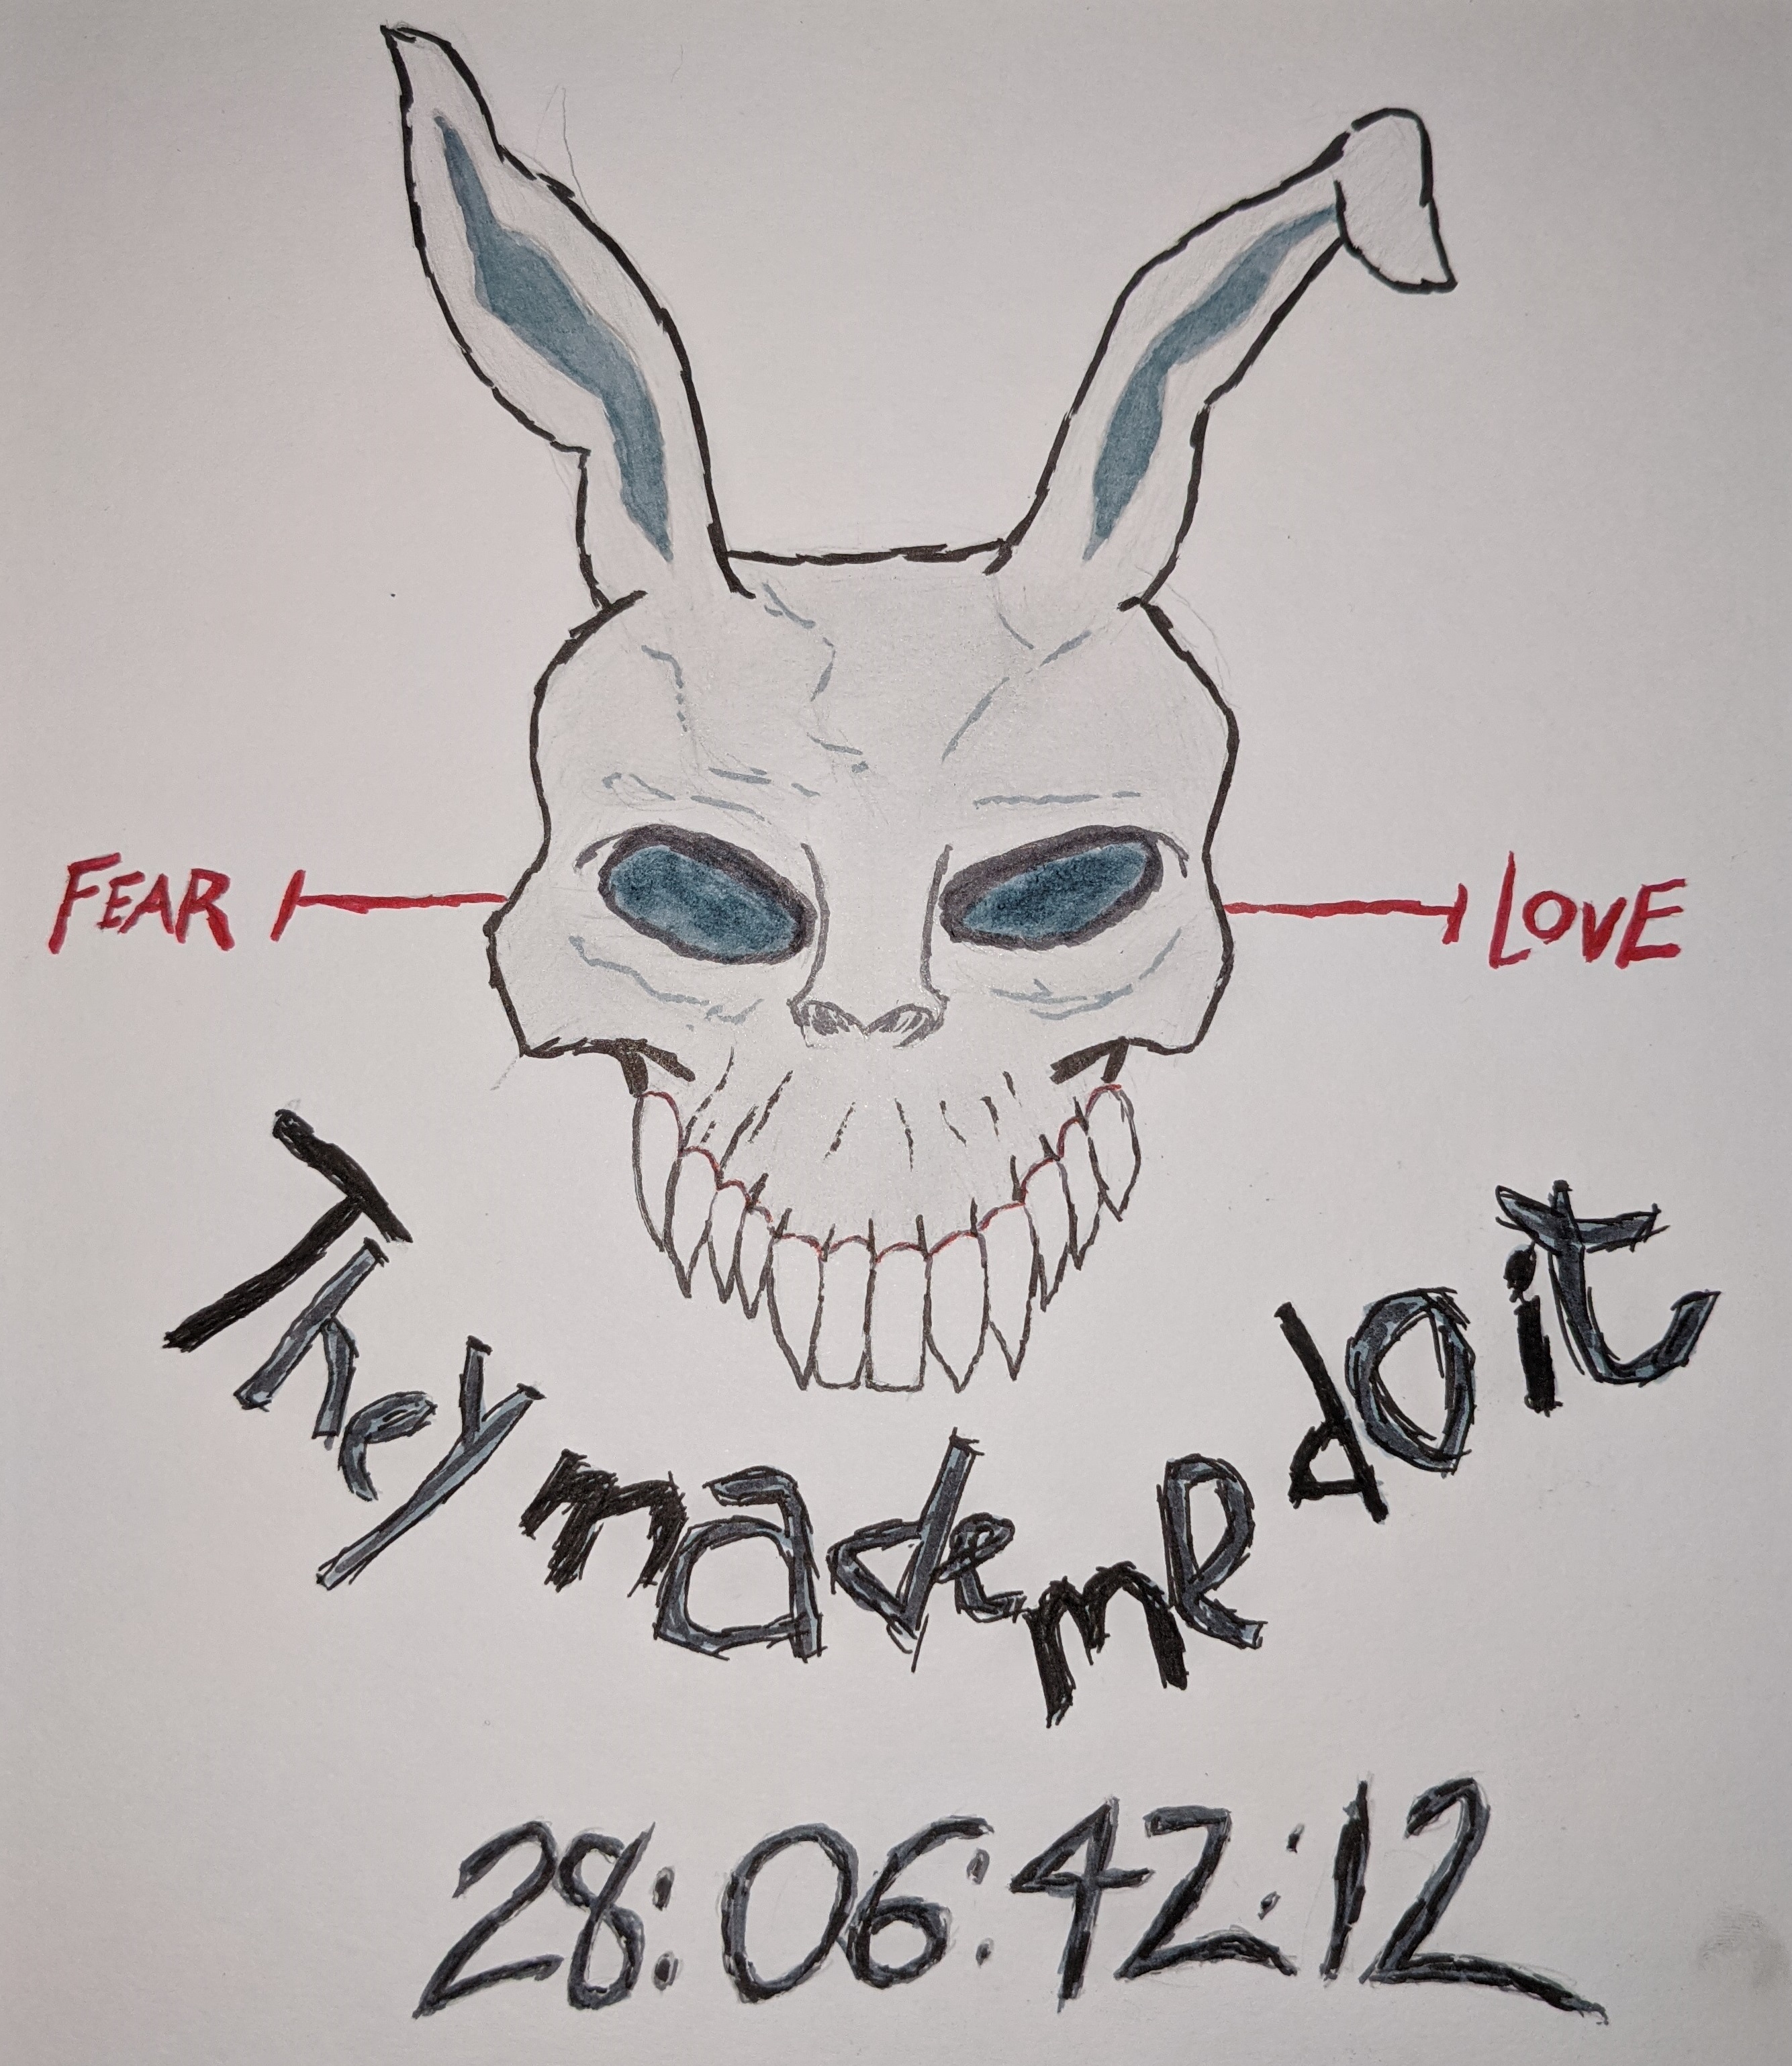 FEAR LOVE
They made me do it
28:06:42:12